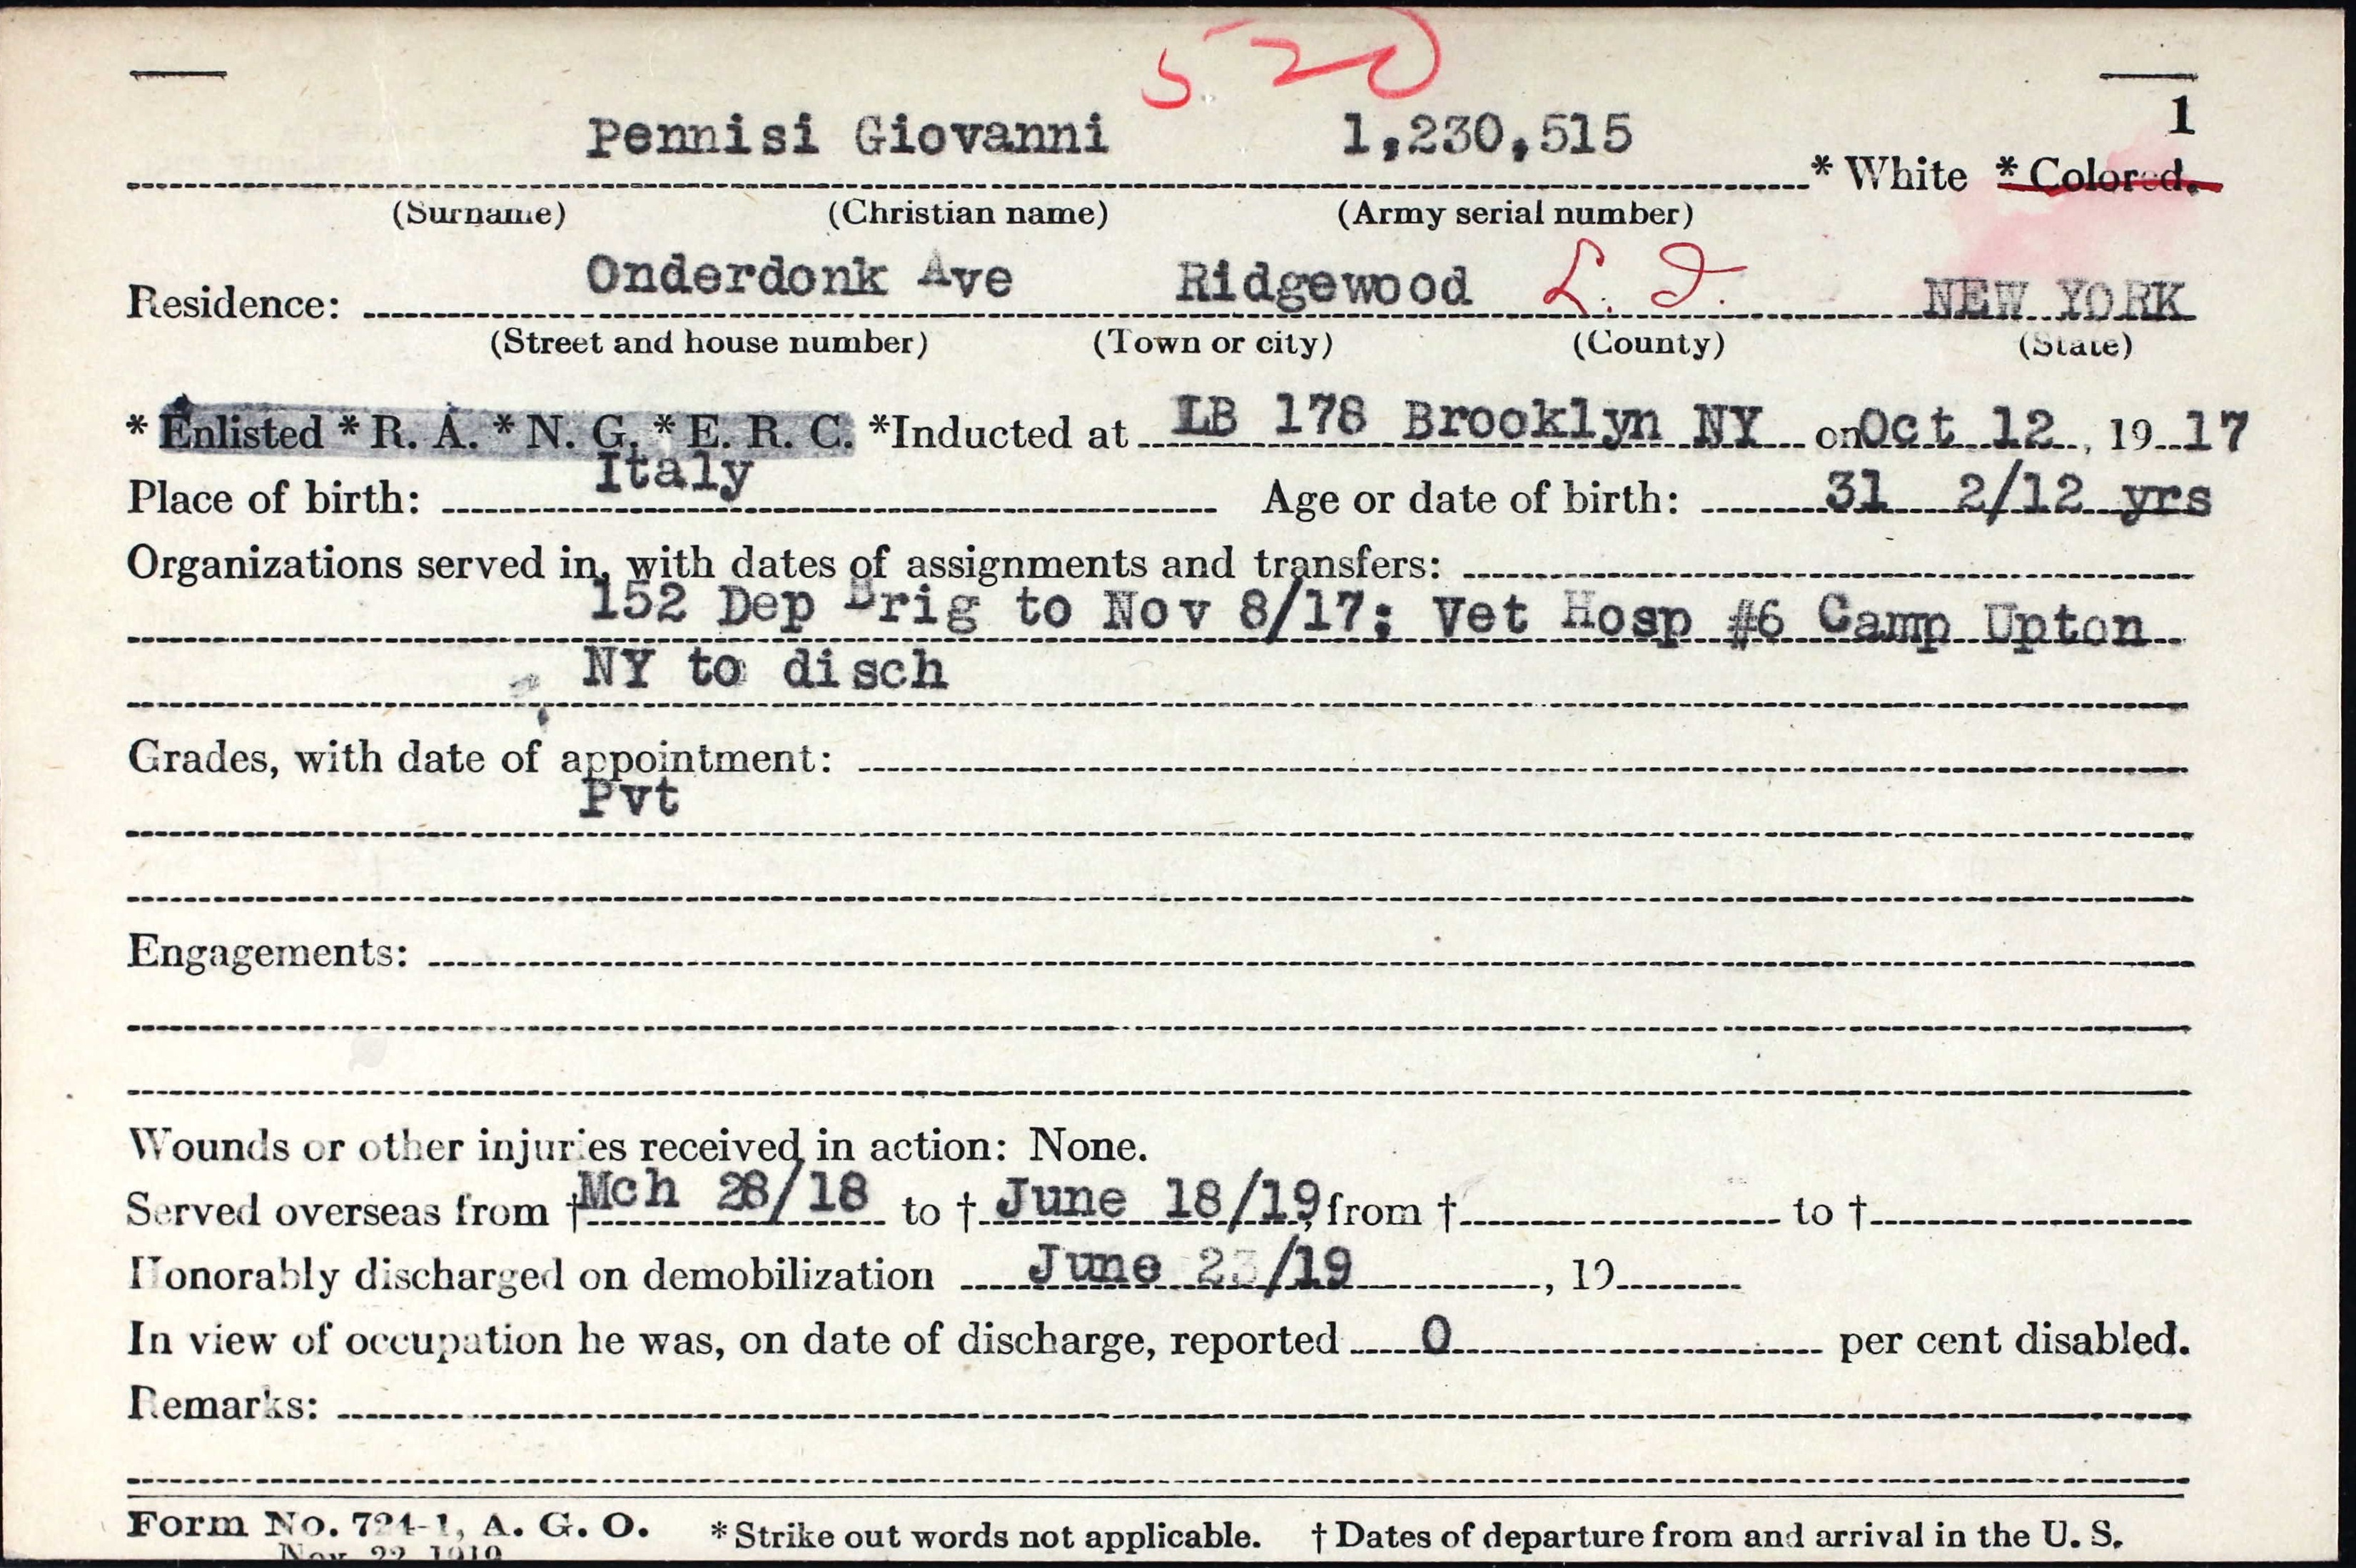 520
Pennisi Giovanni 1,230,515 1
* White * Colored.
(Surname) (Christian name) (Army serial number)
Residence: Onderdonk Ave Ridgewood L. I. NEW YORK
(Street and house number) (Town or city) (County) (State)
* Enlisted * R. A. * N. G. * E. R. C. *Inducted at LB 178 Brooklyn NY on Oct 12, 19 17
Place of birth: Italy Age or date of birth: 31 2/12 yrs
Organizations served in, with dates of assignments and transfers:
152 Dep Brig to Nov 8/17; Vet Hosp #6 Camp Upton
NY to disch
Grades, with date of appointment:
Pvt
Engagements:
Wounds or other injuries received in action: None.
Served overseas from † Mch 28/18 to † June 18/19, from † to †
Honorably discharged on demobilization June 23/19, 19
In view of occupation he was, on date of discharge, reported 0 per cent disabled.
Remarks:
Form No. 724-1, A. G. O. * Strike out words not applicable. † Dates of departure from and arrival in the U. S.
Nov. 22, 1919